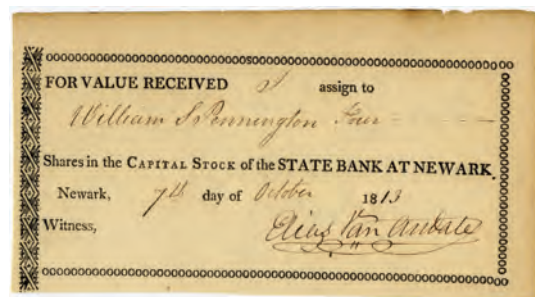 FOR VALUE RECEIVED I assign to
William S Pennington Four
Shares in the CAPITAL STOCK of the STATE BANK AT NEWARK.
Newark, 7th day of October 1813
Witness, Elias Van Arsdale